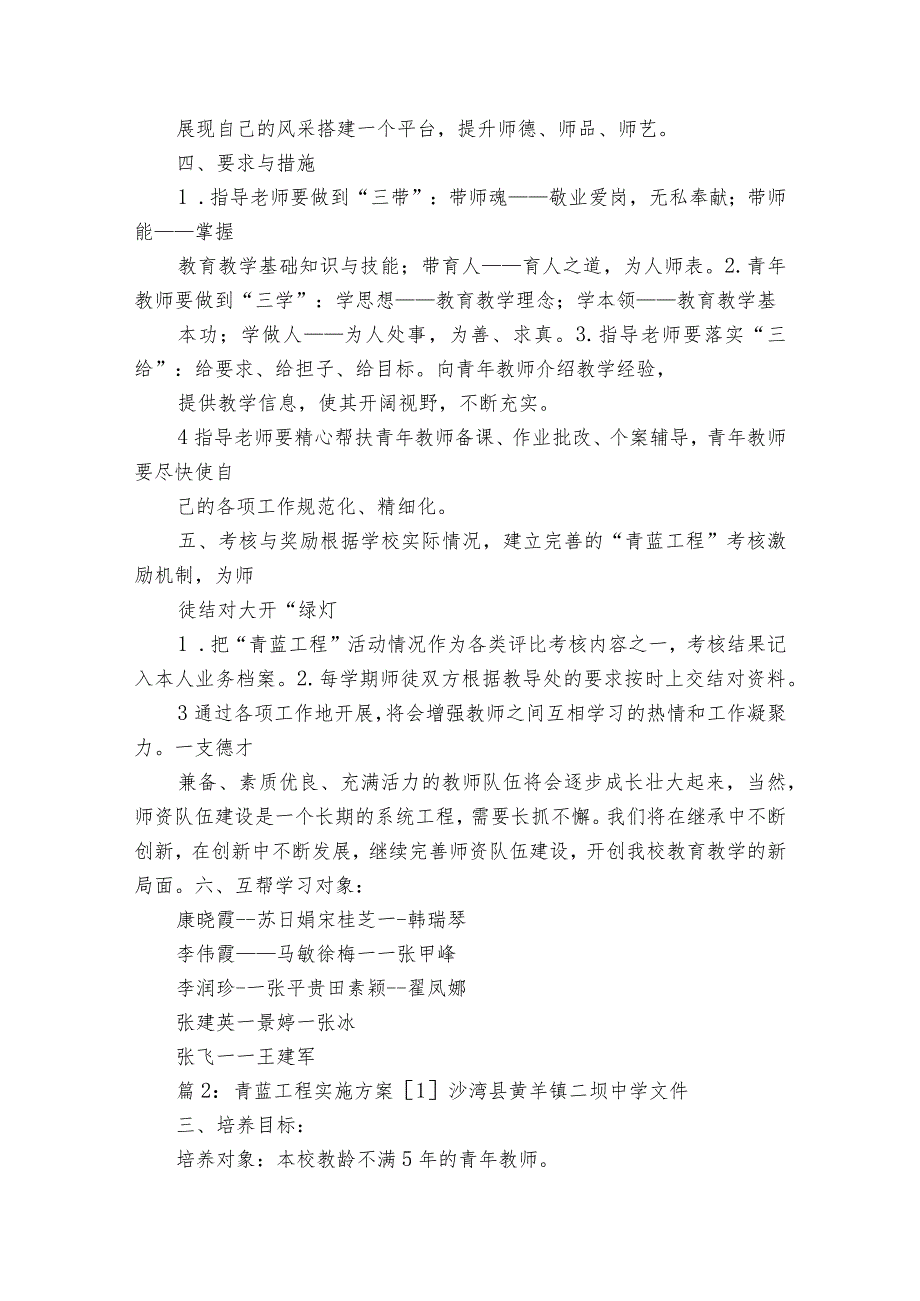 展现自己的风采搭建一个平台，提升师德、师品、师艺。
四、要求与措施
1 .指导老师要做到“三带”：带师魂——敬业爱岗，无私奉献；带师
能——掌握
教育教学基础知识与技能；带育人——育人之道，为人师表。2.青年
教师要做到“三学”：学思想——教育教学理念；学本领——教育教学基
本功；学做人——为人处事，为善、求真。3.指导老师要落实“三
给”：给要求、给担子、给目标。向青年教师介绍教学经验，
提供教学信息，使其开阔视野，不断充实。
4指导老师要精心帮扶青年教师备课、作业批改、个案辅导，青年教师
要尽快使自
己的各项工作规范化、精细化。
五、考核与奖励根据学校实际情况，建立完善的“青蓝工程”考核激
励机制，为师
徒结对大开“绿灯
1 .把“青蓝工程”活动情况作为各类评比考核内容之一，考核结果记
入本人业务档案。2.每学期师徒双方根据教导处的要求按时上交结对资料。
3通过各项工作地开展，将会增强教师之间互相学习的热情和工作凝聚
力。一支德才
兼备、素质优良、充满活力的教师队伍将会逐步成长壮大起来，当然，
师资队伍建设是一个长期的系统工程，需要长抓不懈。我们将在继承中不断
创新，在创新中不断发展，继续完善师资队伍建设，开创我校教育教学的新
局面。六、互帮学习对象：
康晓霞--苏日娟宋桂芝一-韩瑞琴
李伟霞——马敏徐梅一一张甲峰
李润珍-一张平贵田素颖--翟凤娜
张建英一景婷一张冰
张飞一一王建军
篇2：青蓝工程实施方案［1］沙湾县黄羊镇二坝中学文件
三、培养目标：
培养对象：本校教龄不满5年的青年教师。